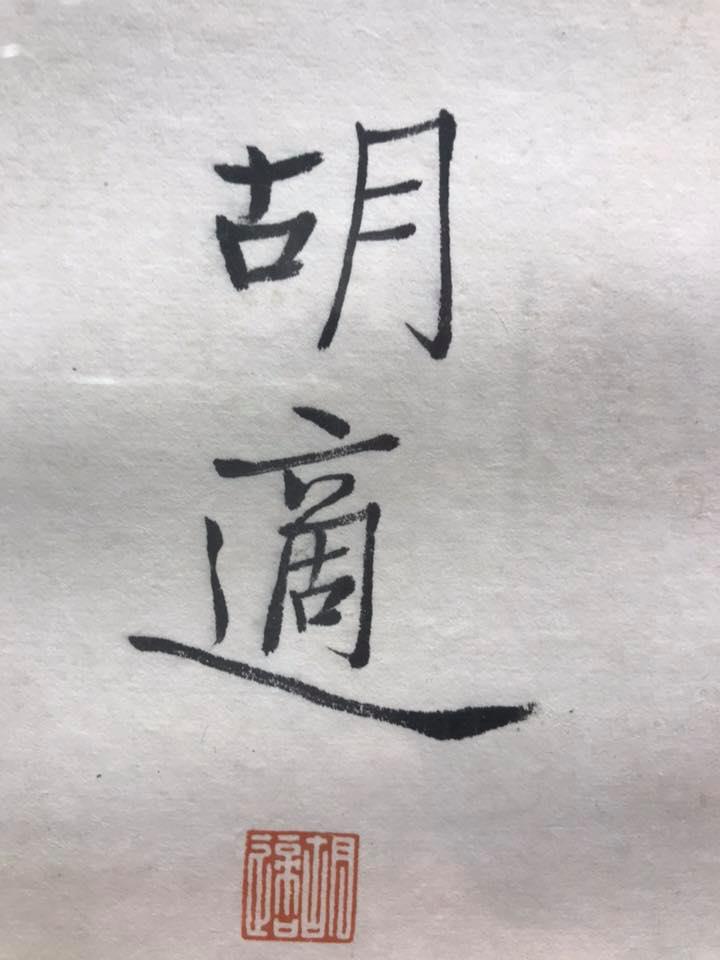 胡適
胡適